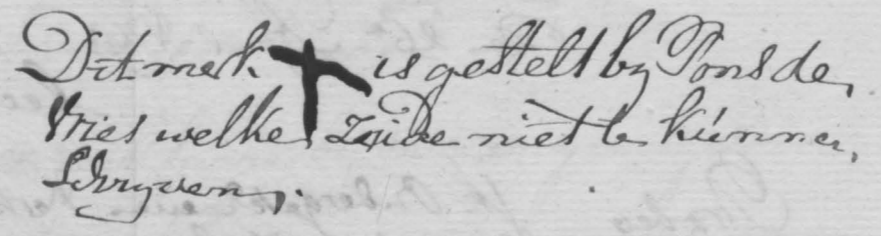 Dit merk is gestelt by Pons de
Vries welke zeide niet te kunnen
Schryven.